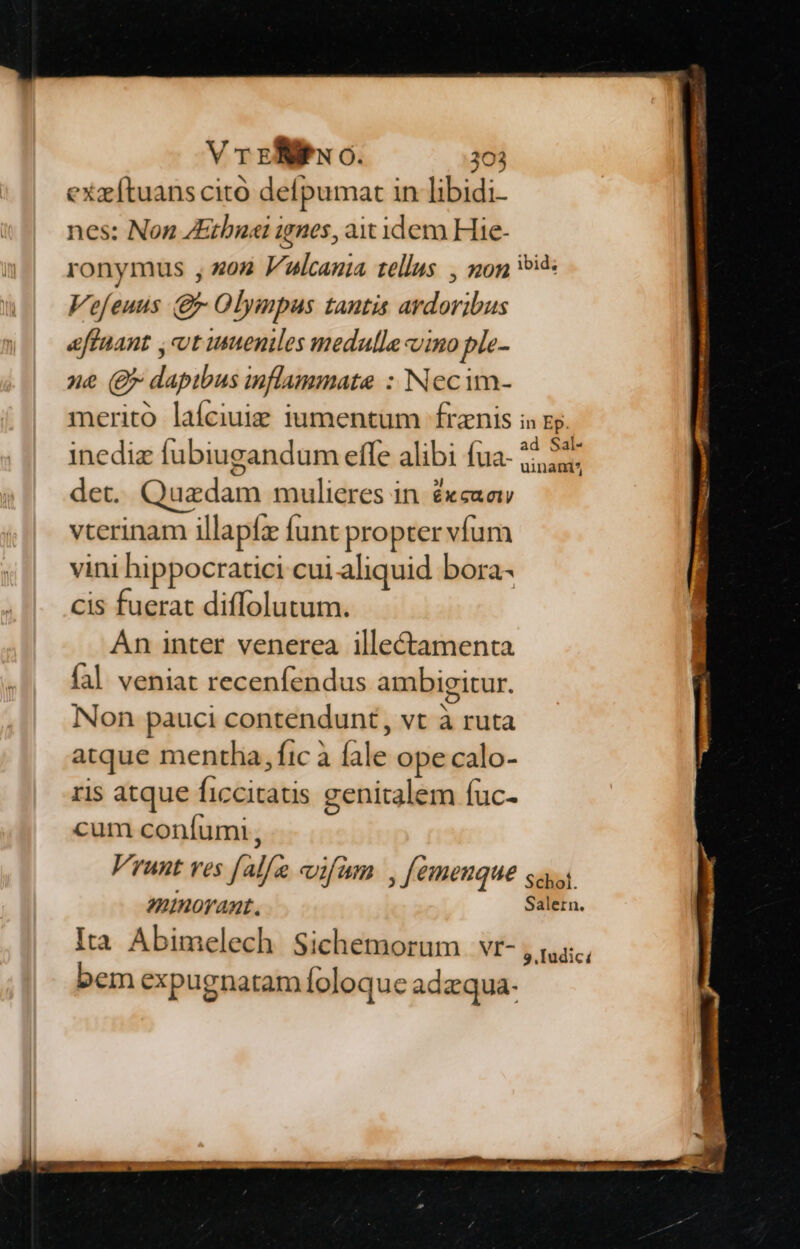 VTERINO. 303
exæſtuans citò deſpumat in libidi-
nes: Non Æthnæi ignes, ait idem Hie-
ronymus , non Vulcania tellus , non ibid.
Veſeuus & Olympus tantis ardoribus
æſtuant , vt iuueniles medullæ vino ple-
næ & dapibus inflammatæ : Nec im-
meritò laſciuiæ iumentum frænis in Ep.
inediæ ſubiugandum eſſe alibi ſua- ad Sal-
uinam,
det. Quædam mulieres in ἔκστασιν
vterinam illapſæ ſunt propter vſum
vini hippocratici cui aliquid bora-
cis fuerat diſſolutum.
An inter venerea illectamenta
ſal veniat recenſendus ambigitur.
Non pauci contendunt, vt à ruta
atque mentha, ſic à ſale ope calo-
ris atque ſiccitatis genitalem ſuc-
cum conſumi,
Vrunt res ſalſæ viſum , ſemenque Schol.
minorant. Salern.
Ita Abimelech Sichemorum vr- 9.Iudic.
bem expugnatam ſoloque adæqua-